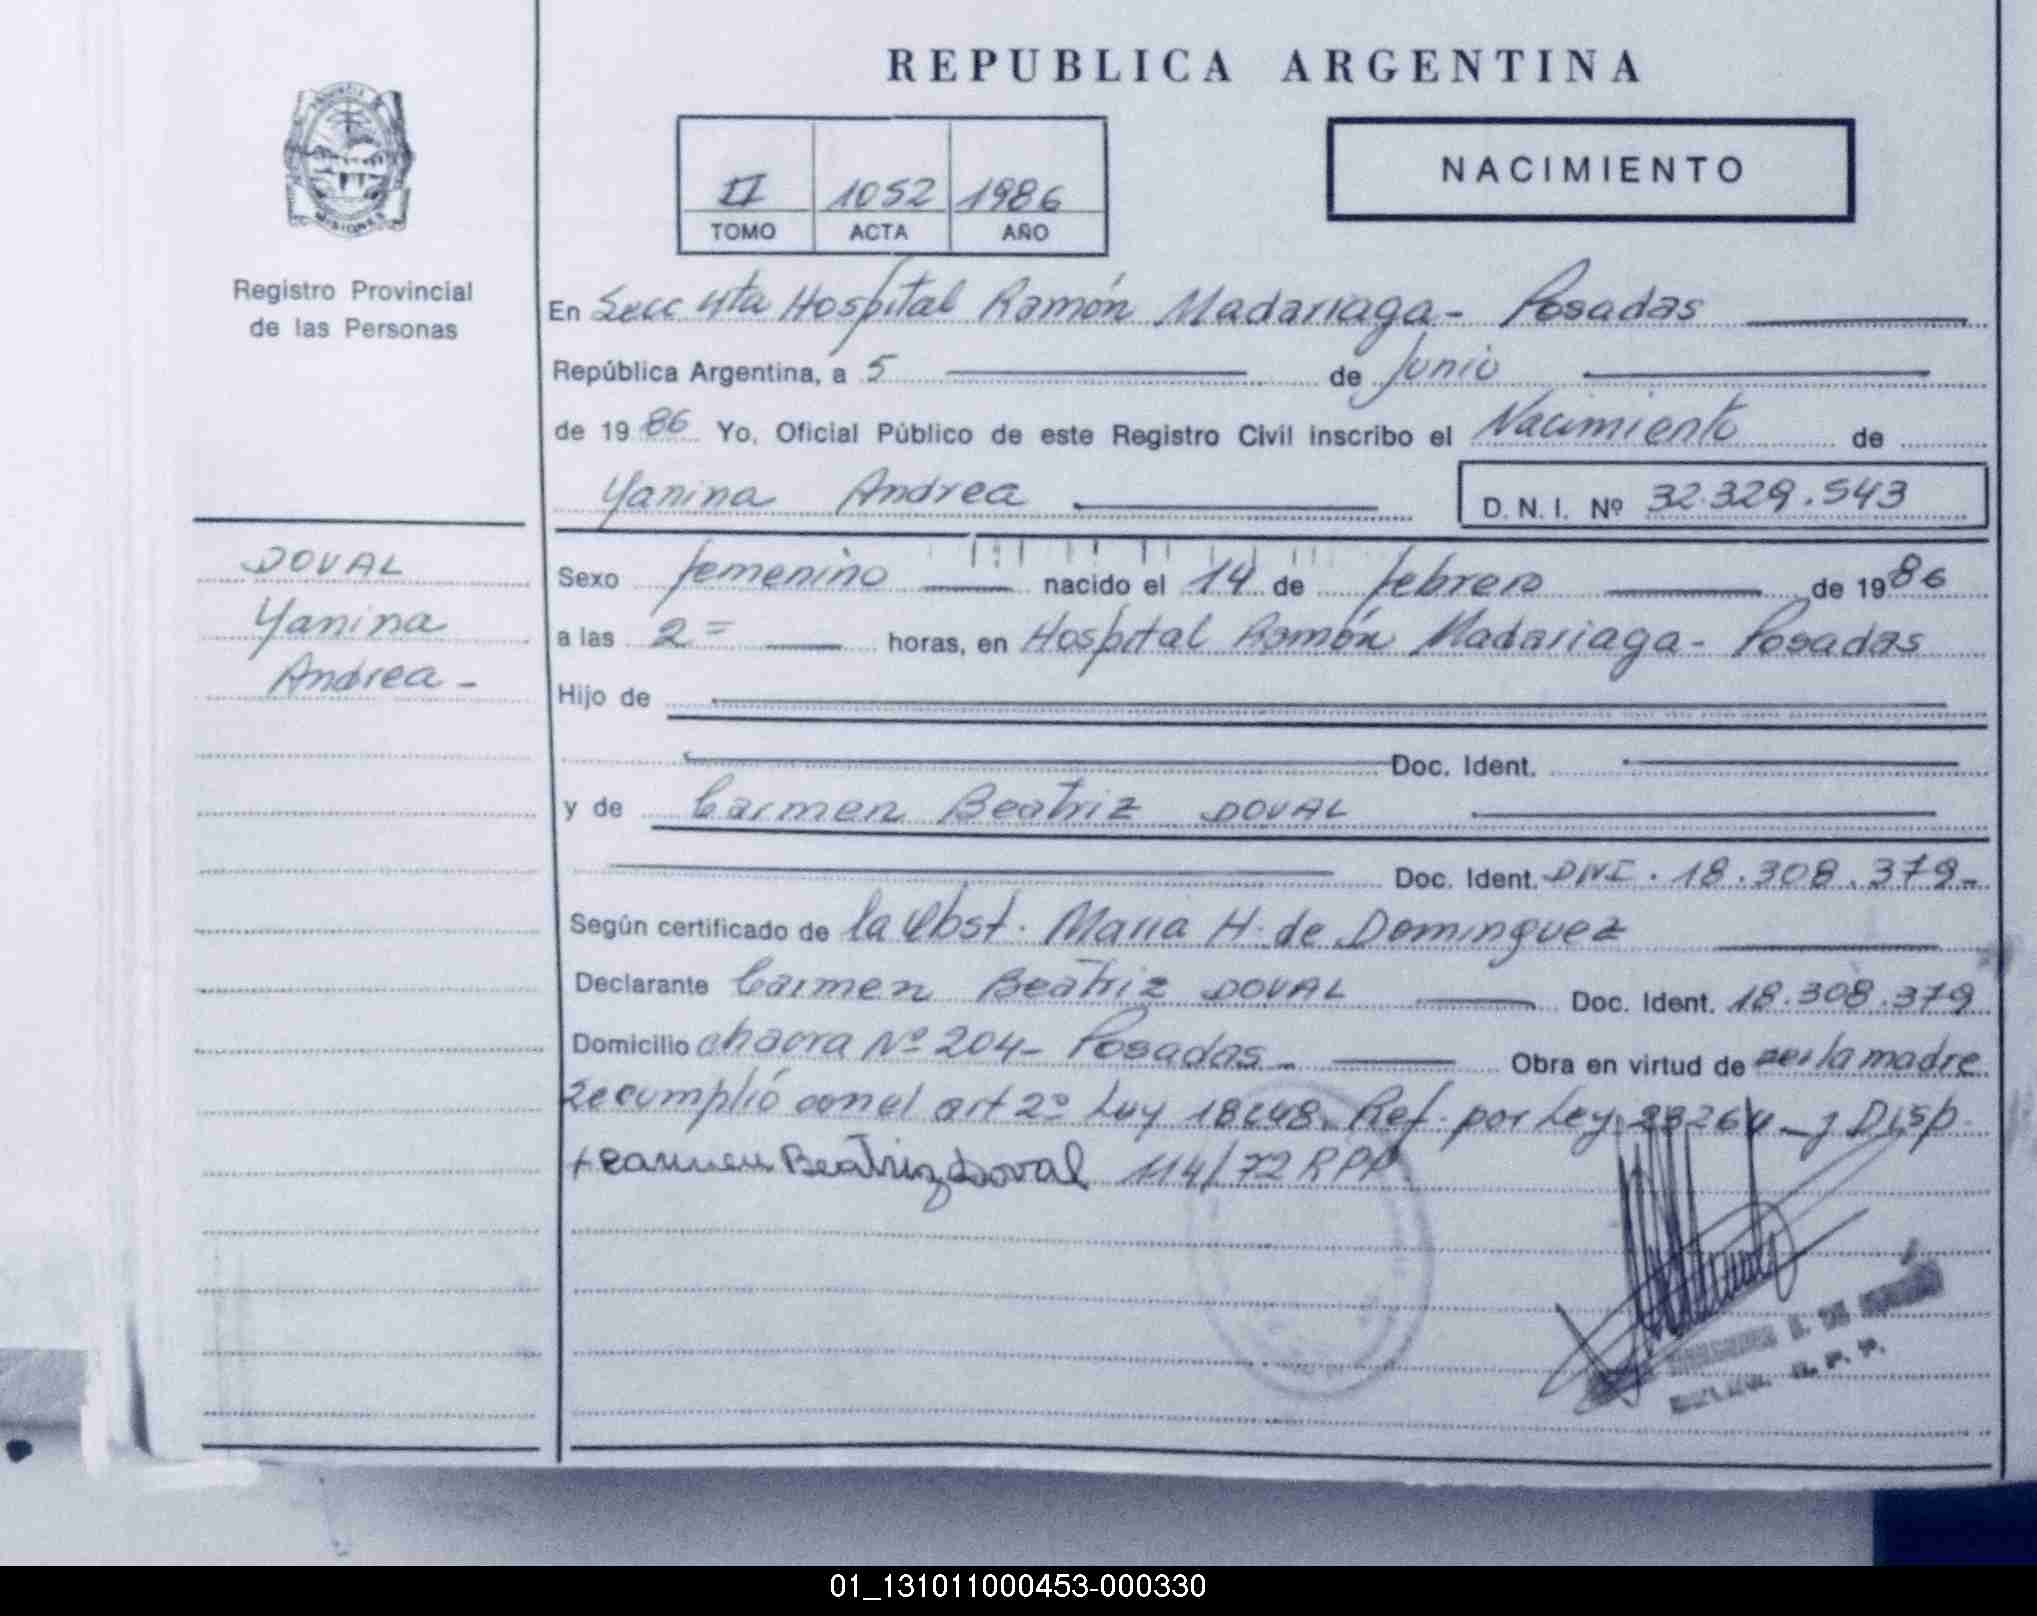 REPUBLICA ARGENTINA
II 1052 1986
TOMO ACTA AÑO
NACIMIENTO
PROVINCIA DE
MISIONES
Registro Provincial
de las Personas
En Secc 4ta Hospital Ramón Madariaga - Posadas
República Argentina, a 5 de Junio
de 1986 Yo, Oficial Público de este Registro Civil inscribo el Nacimiento de
Yanina Andrea D. N. I. Nº 32.329.543
DOVAL
Yanina
Andrea -
Sexo femenino nacido el 14 de febrero de 1986
a las 2= horas, en Hospital Ramón Madariaga - Posadas
Hijo de
Doc. Ident.
y de Carmen Beatriz DOVAL
Doc. Ident. DNI. 18.308.379-
Según certificado de la Obst. Maria H. de Dominguez
Declarante Carmen Beatriz DOVAL Doc. Ident. 18.308.379
Domicilio chacra Nº 204- Posadas - Obra en virtud de ser la madre
Se cumplió con el art 2º Ley 18248. Ref. por Ley 23264 - y Disp.
+ Carmen Beatriz Doval 114/72 RPP
R. P. P.
01_131011000453-000330